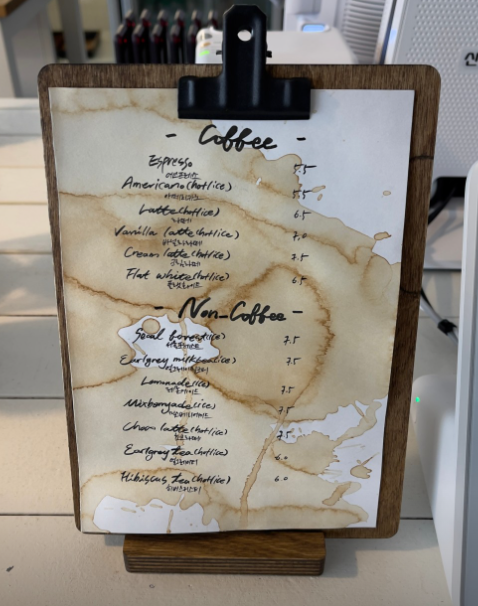 - Coffee -
Espresso 5.5
에스프레소
Americano (hot/ice) 5.5
아메리카노
Latte (hot/ice) 6.5
라떼
Vanilla latte (hot/ice) 7.0
바닐라라떼
Cream latte (hot/ice) 7.5
크림라떼
Flat white (hot/ice) 6.5
플랫화이트
- Non-Coffee -
forest (ice) 7.5
Earlgrey milktea (ice) 7.5
Lemonade (ice) 7.5
레몬에이드
(ice) 7.5
Choco latte (hot/ice) 7.5
초코라떼
Earlgrey tea (hot/ice) 6.0
Hibiscus tea (hot/ice) 6.0
히비스커스티